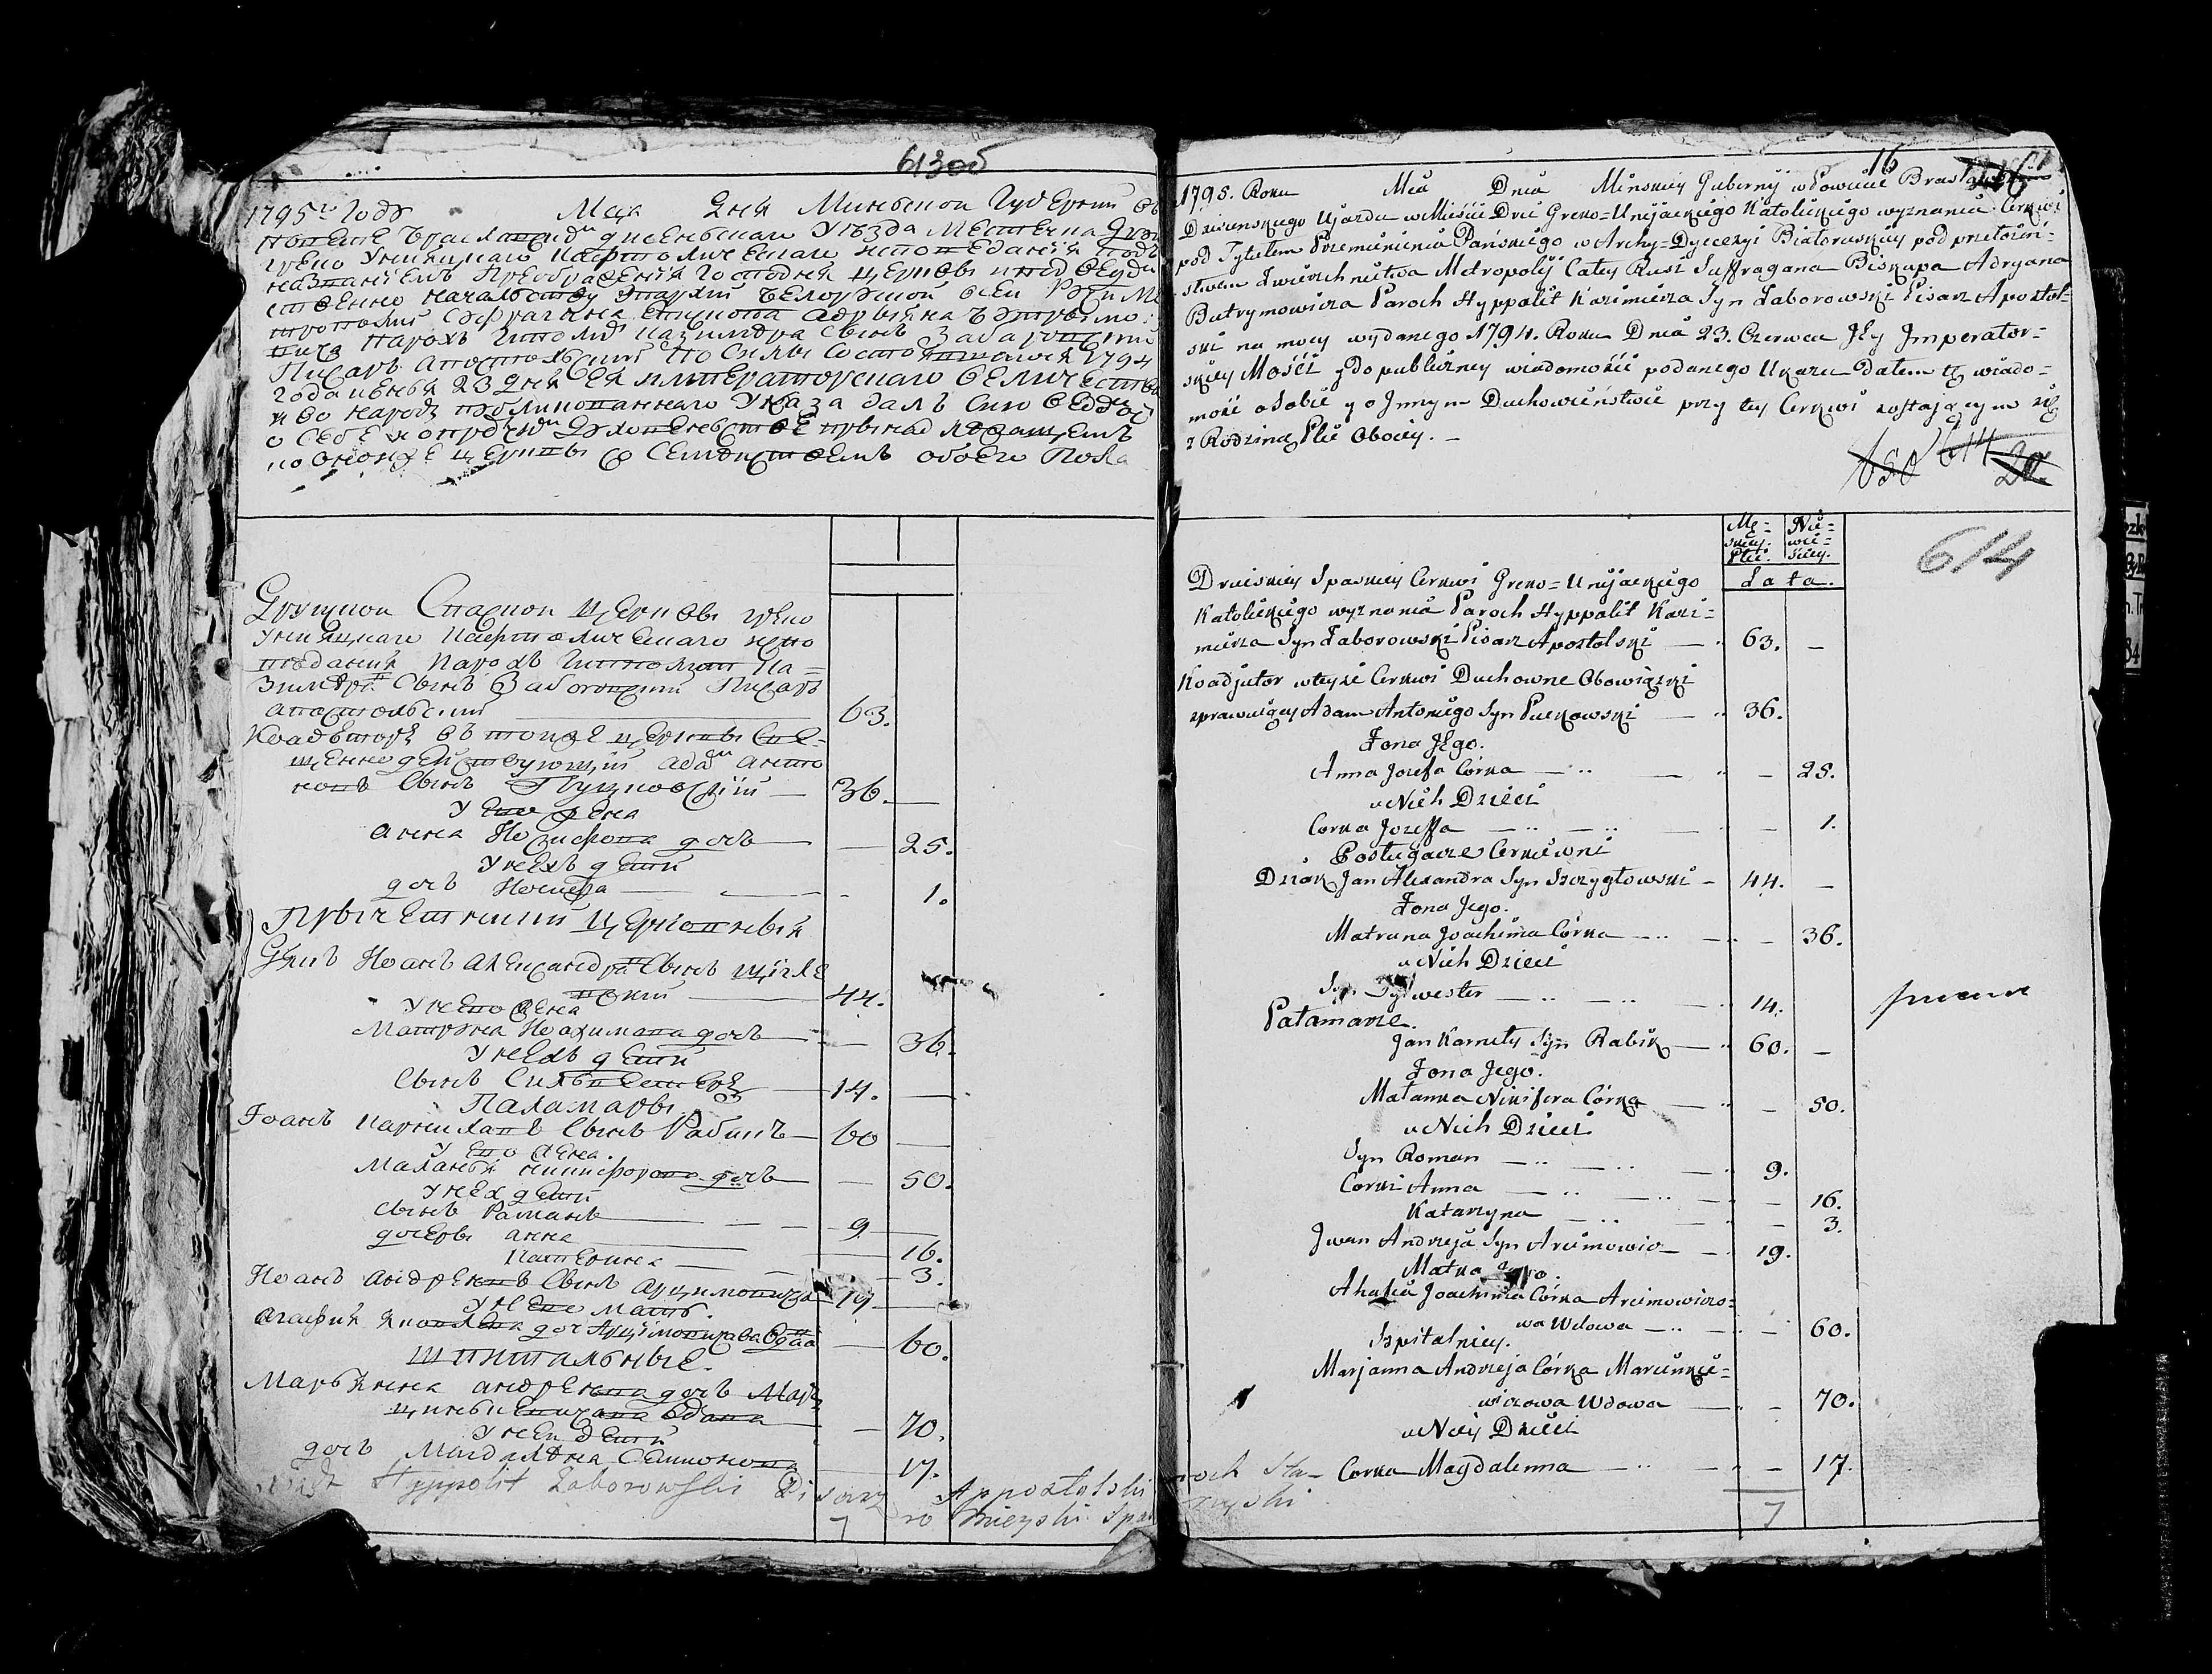 613об
1795го Году Мца Дня Минской Губернии въ
повете Браславском Дисенскаго Уезда местечка Друи
греко Униацкаго Кафтолическаго исповедания подъ
названиемъ Преображения Господня церкви
начальству Епархии Белоруской всей
Парохъ Заборовский
Писаръ Апостольский 1794
года июня 23 дня Ея Императорскаго Величества
Указа далъ сию
о себе
церквы со Семейством обоего Пола
Друйской Спаской Церквы греко
униацкаго Кафтолическаго испо
ведания Парохъ Ипполит Ка=
зимера Сынъ Заборовский Писаръ
апостольский 63.
Коадъюторъ въ тойже церквы Све-
щеннодействующий Адам Анто
новъ Сынъ Пуцковский — 36. —
У Его жена
Анна Иозифова дочь — 25.
У нехъ дети
дочь Иозефа — - 1.
Прычетники Церковныя
Дякъ Иоанъ Александра Сынъ Щигле
вский 44.
У него жена
Матруна Иоахимова дочь — 36.
У нехъ дети
Сынъ Сильвестеръ 14. —
Паламары
Иоанъ Корнилавъ Сынъ Рабикъ 60 —
У Его жена.
Маланья Никифорова дочь — 50.
У нех дети
Сынъ Раманъ 9 —
дочеры анна — 16.
Катерина — 3.
Иоанъ андреевъ Сынъ Арцимовича 19 —
У него мать.
Агафия Якимова дочь Арцимовичава вдова — 60.
Шпитальные.
Марьянна андреева дочь Мар
цинкевичава вдова — 70.
У ней дети
дочь Магдалена 17.
Hyppolit Zaborowski Pisarz Appostolski
7 10
16
1795. Roku Mca Dnia Minskiey Gubernij w Powiecie Brasławskim
Dzisienskiego Ujazdu w Mieście Drui Greko=Unijackiego Katolickiego wyznania Cerkwi
pod Tytułem Przemienienia Pańskiego w Archy=Dyecezyi Białoruskiey pod przełożeń=
stwem Zwierzchnictwa Metropolij Całey Rusi Suffragana Biskupa Adryana
Butrymowicza Paroch Hyppolit Kazimierza Syn Zaborowski Pisarz Apostol=
ski na mocy wydanego 1794. Roku Dnia 23. Czerwca Jey Jmperator=
skiey Mości y do publiczney wiadomości podanego Ukazu Dałem tę wiado=
mość o Sobie y o Jnnym Duchowieństwie przy tey Cerkwi zostającym się
z Rodziną Płci Oboiey. —
614
Mę= skiey. Płci. Nie= wie= ściey.
Lata.
614
Druiskiey Spaskiey Cerkwi Greko=Unijackiego
Katolickiego wyznania Paroch Hyppolit Kazi=
mierza Syn Zaborowski Pisarz Apostolski — 63. —
Koadjutor w teyże Cerkwi Duchowne Obowiązki
sprawuiący Adam Antoniego Syn Puckowski — 36.
Zona Jego.
Anna Jozefa Córka — — 25.
u Nich Dzieci
Corka Jozeffa — — 1.
Posługacze Cerkiewni
Dziak Jan Alexandra Syn Szczygłowski — 44. —
Zona Jego.
Matruna Joachima Córka — — 36.
u Nich Dzieci
Syn Sylwester — 14.
Pałamarze.
Jan Karniły Syn Rabik — 60. —
Zona Jego.
Małanka Nikifera Córka — — 50.
u Nich Dzieci
Syn Roman — 9.
Corki Anna — — 16.
Katarzyna — — 3.
Jwan Andrzeja Syn Arcimowicz — 19.
Matka Jego.
Ahafia Joachima Córka Arcimowiczo=
wa Wdowa — — 60.
Szpitalnicy.
Marjanna Andrzeja Córka Marcinkie=
wiczowa Wdowa — — 70.
u Niey Dzieci
Corka Magdalenna — — 17.
7